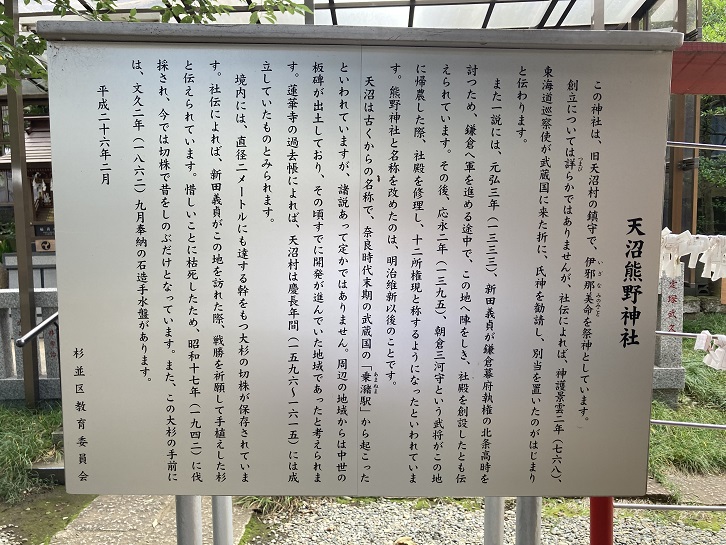 天沼熊野神社
この神社は、旧天沼村の鎮守で、伊邪那美命を祭神としています。
創立については詳らかではありませんが、社伝によれば、神護景雲二年(七六八)、
東海道巡察使が武蔵国に来た折に、氏神を勧請し、別当を置いたのがはじまり
と伝わります。
また一説には、元弘三年(一三三三)、新田義貞が鎌倉幕府執権の北条高時を
討つため、鎌倉へ軍を進める途中で、この地へ陣をしき、社殿を創設したとも伝
えられています。その後、応永二年(一三九五)、朝倉三河守という武将がこの地
に帰農した際、社殿を修理し、十二所権現と称するようになったといわれていま
す。熊野神社と名称を改めたのは、明治維新以後のことです。
天沼は古くからの名称で、奈良時代末期の武蔵国の「乗瀦駅」から起こった
といわれていますが、諸説あって定かではありません。周辺の地域からは中世の
板碑が出土しており、その頃すでに開発が進んでいた地域であったと考えられま
す。蓮華寺の過去帳によれば、天沼村は慶長年間(一五九六~一六一五)には成
立していたものとみられます。
境内には、直径二メートルにも達する幹をもつ大杉の切株が保存されていま
す。社伝によれば、新田義貞がこの地を訪れた際、戦勝を祈願して手植えした杉
と伝えられています。惜しいことに枯死したため、昭和十七年(一九四二)に伐
採され、今では切株で昔をしのぶだけとなっています。また、この大杉の手前に
は、文久二年(一八六二)九月奉納の石造手水盤があります。
平成二十六年二月
杉並区教育委員会